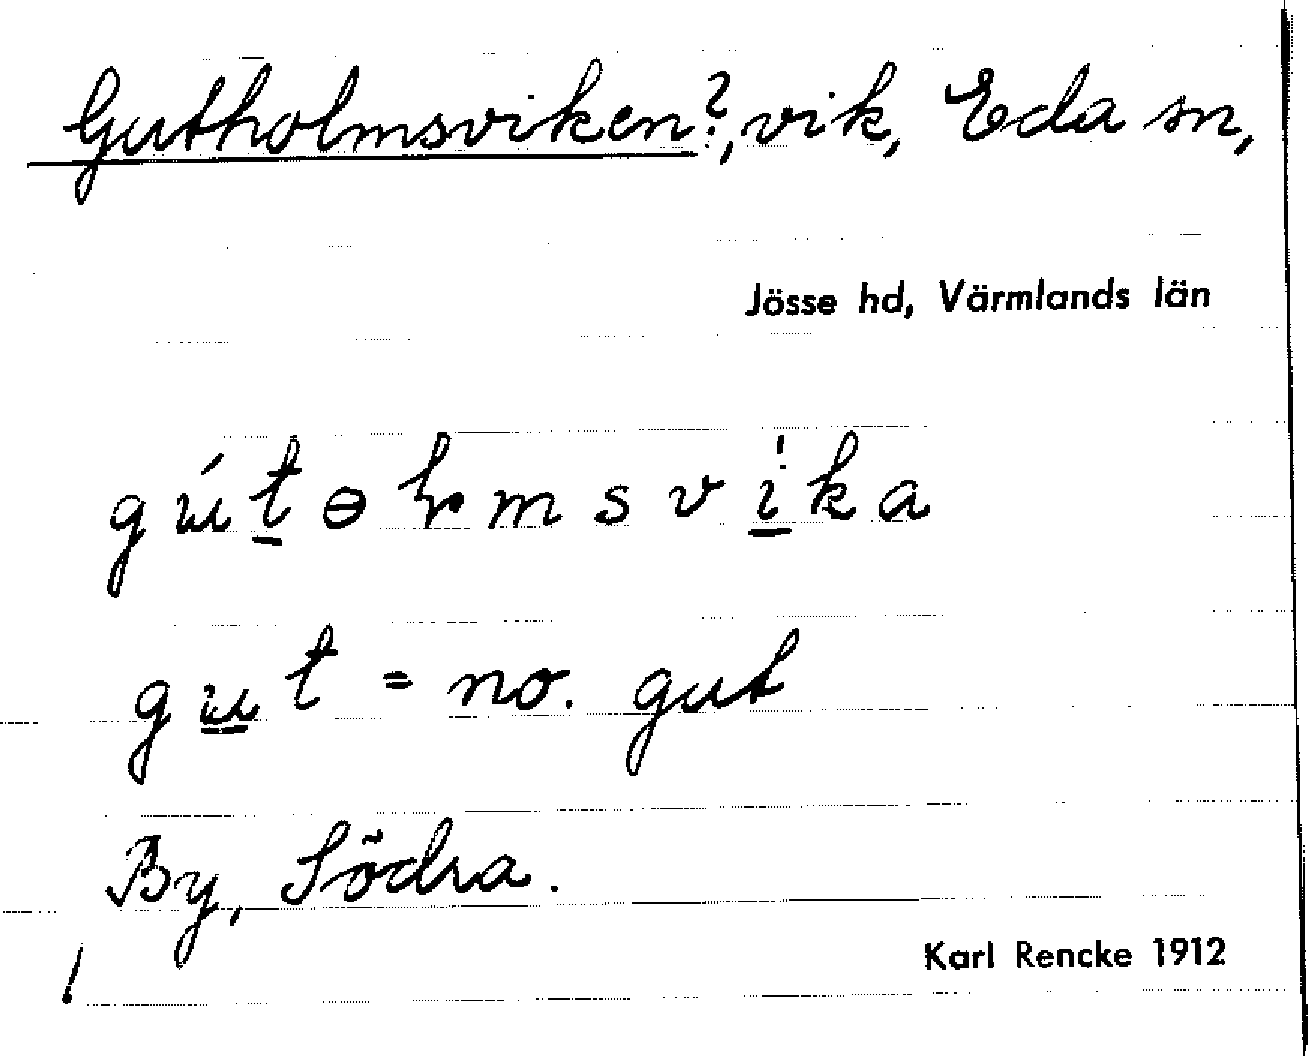 Gutholmsviken?, vik, Eda sn,
Jösse hd, Värmlands län
gút̲əɫmsvi̲ka
gu̲t = no. gut
By, Södra.
Karl Rencke 1912